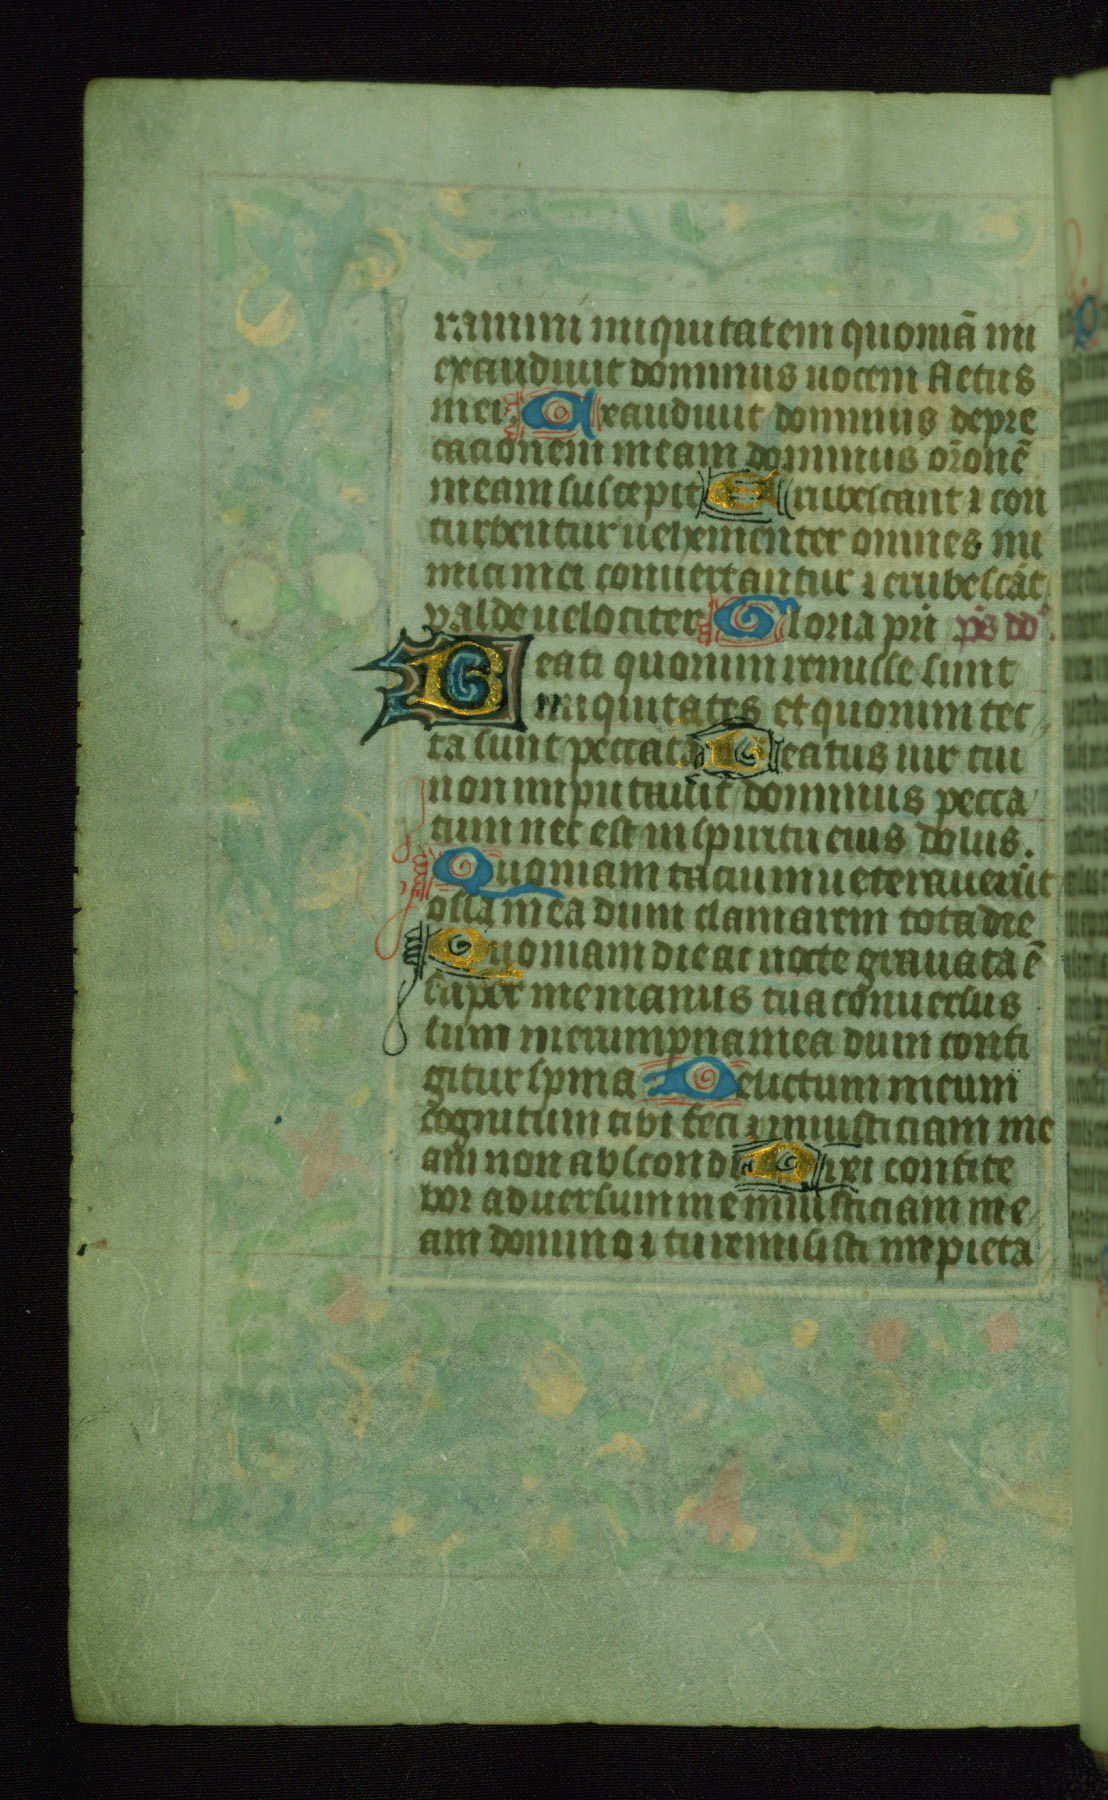 ramini iniquitatem quoniā mi
exaudiuit dominus uocem fletus
mei. Exaudiuit dominus depre
cationem meam dominus orōnē
meam suscepit Erubescant ⁊ con
turbentur uehementer omnes ini
mici mei conuertantur ⁊ erubescāt
valde uelociter Gloria pri ps dd
Beati quorum remisse sunt
iniquitates et quorum tec
ta sunt peccata Beatus uir cui
non imputauit dominus pecca
tum nec est in spiritu eius dolus.
Quoniam tacui inueterauerūt
ossa mea dum clamarem tota die
Quoniam die ac nocte grauata ē
super me manus tua conuersus
sum in erumpna mea dum confi
gitur spina Delictum meum
cognitum tibi feci ⁊ iniusticiam me
am non abscondi Dixi confite
bor aduersum me iniusticiam me
am domino ⁊ tu remisisti impieta